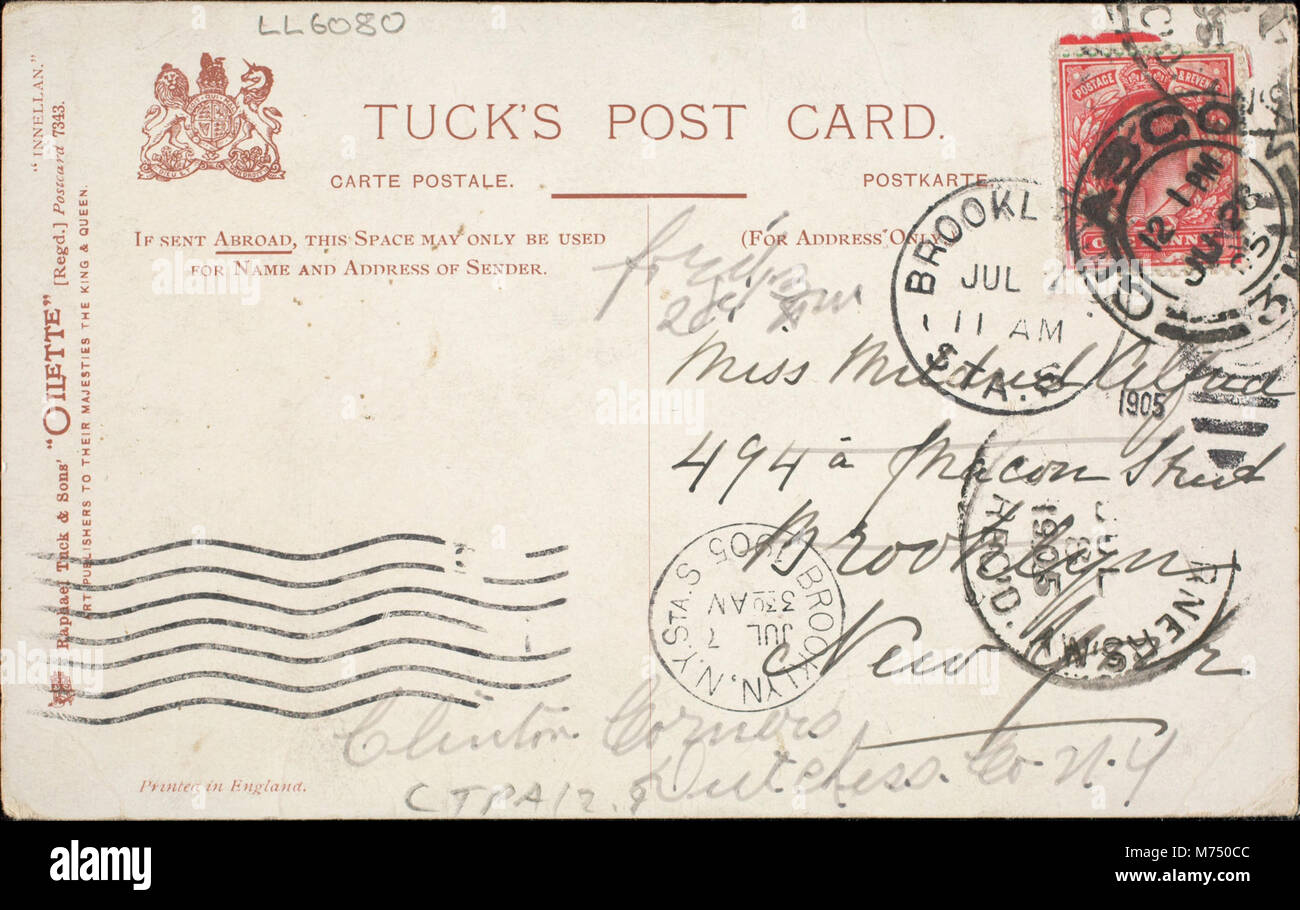 LL6080
TUCK'S POST CARD.
CARTE POSTALE. POSTKARTE
IF SENT ABROAD, THIS SPACE MAY ONLY BE USED
FOR NAME AND ADDRESS OF SENDER.
(FOR ADDRESS ONLY
"INNELLAN."
Raphael Tuck & Sons' "OILETTE" [Regd.] Postcard 7343.
ART PUBLISHERS TO THEIR MAJESTIES THE KING & QUEEN.
POSTAGE & REVENUE
GLASGOW
12 1 PM
JU 28
05
BROOKL
JUL 7
11 AM
STA. S
1905
Miss Mildred Alfred
494 a Macon Street
Brooklyn
New York
BROOKLYN, N.Y. STA. S
JUL
7
330 AM
1905
RNERS, N.Y.
JUL
8
1905
REC'D.
Clinton Corners
Dutchess. Co. N.Y
CTPA12.
Printed in England.
alamy
Image ID: M750CC
www.alamy.com